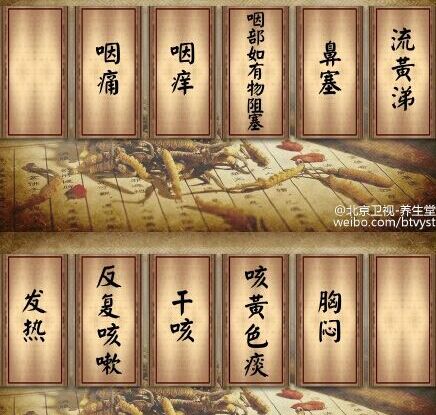 咽痛
咽痒
咽部如有物阻塞
鼻塞
流黄涕
@北京卫视-养生堂
weibo.com/btvyst
发热
反复咳嗽
干咳
咳黄色痰
胸闷